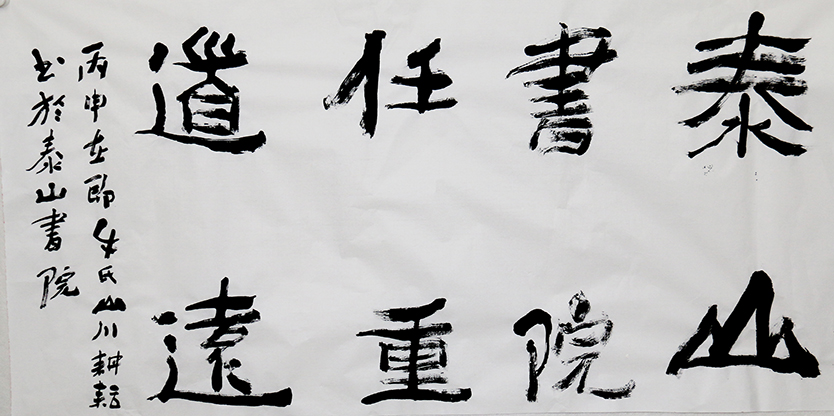 泰山
書院
任重
道遠
丙申在即氏山川耕耘
书於泰山書院